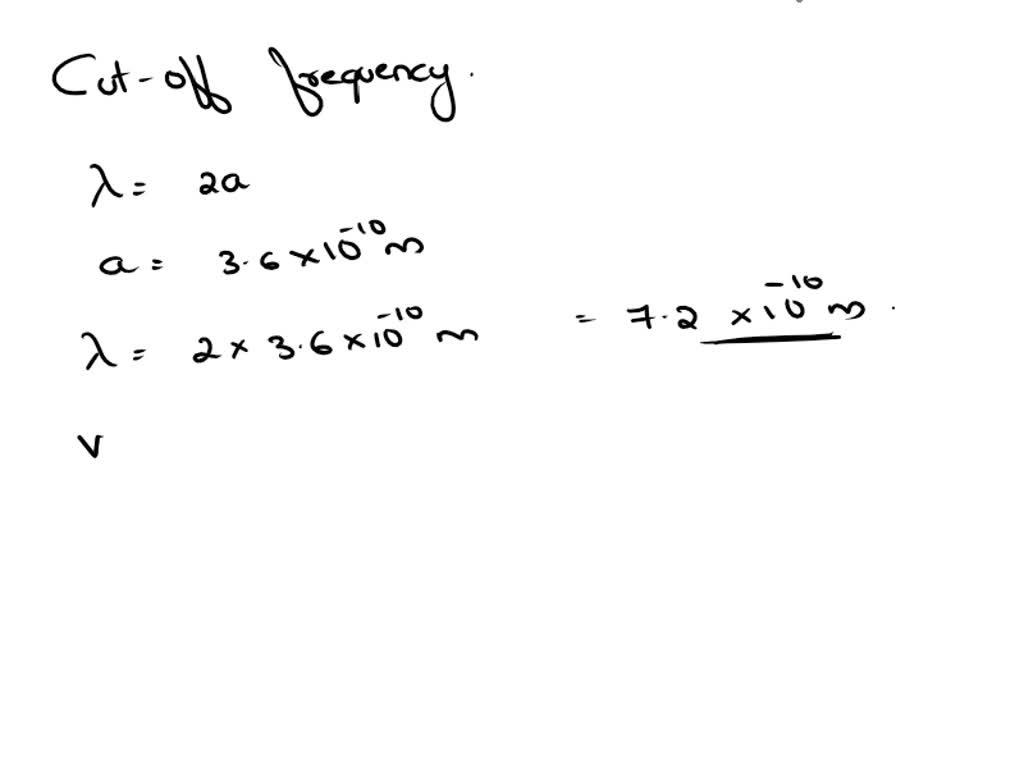 Cut-off frequency.
λ = 2a
a = 3.6 × 10⁻¹⁰ m
λ = 2 × 3.6 × 10⁻¹⁰ m = 7.2 × 10⁻¹⁰ m.
v